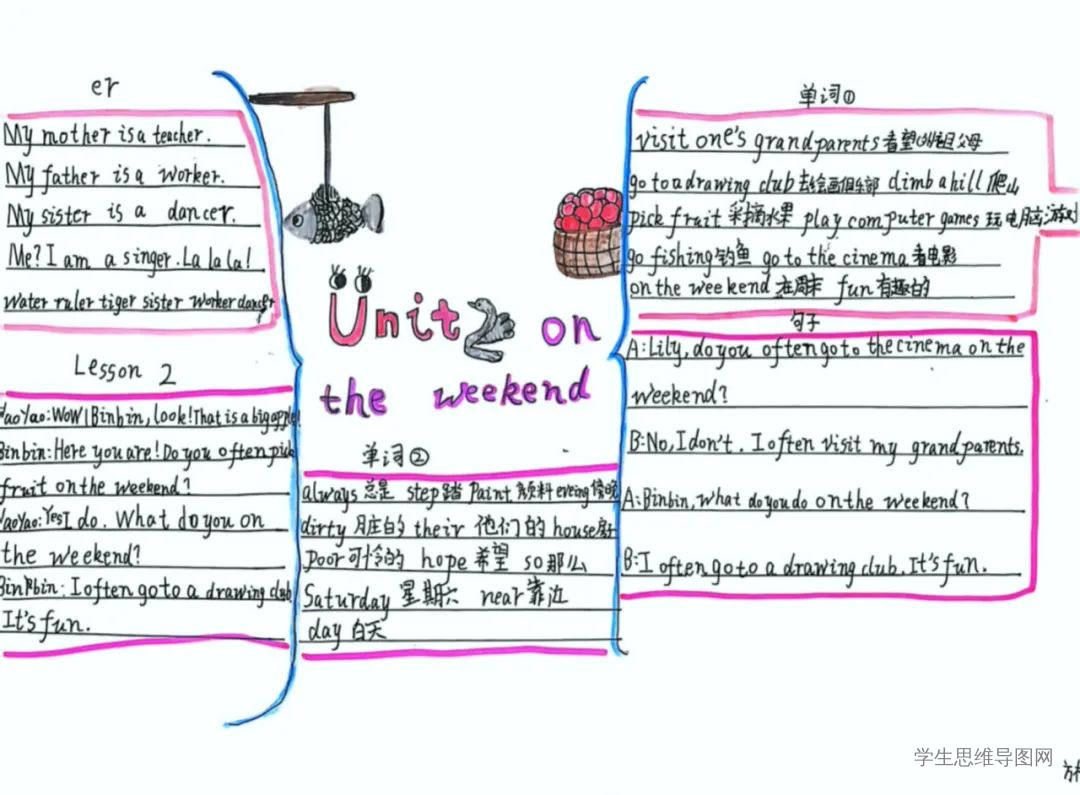 er
My mother is a teacher.
My father is a worker.
My sister is a dancer.
Me? I am a singer. La la la!
water ruler tiger sister worker dancer
Lesson 2
YaoYao: WOW! Binbin, look! That is a big apple!
Binbin: Here you are! Do you often pick
fruit on the weekend?
YaoYao: Yes I do. What do you on
the weekend?
BinBbin: I often go to a drawing club
It's fun.
Unit 2 on
the weekend
单词②
always 总是 step 踏 Paint 颜料 eveing 傍晚
dirty 脏的 their 他们的 house 房子
Poor 可怜的 hope 希望 so 那么
Saturday 星期六 near 靠近
day 白天
单词①
visit one's grandparents 看望(外)祖父母
go to a drawing club 去绘画俱乐部 climb a hill 爬山
pick fruit 采摘水果 play computer games 玩电脑游戏
go fishing 钓鱼 go to the cinema 看电影
on the weekend 在周末 fun 有趣的
句子
A: Lily, do you often go to the cinema on the
weekend?
B: No, I don't. I often visit my grandparents.
A: Binbin, what do you do on the weekend?
B: I often go to a drawing club. It's fun.
学生思维导图网